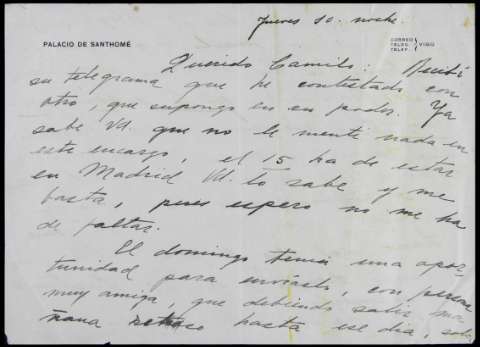 Jueves 10. noche.
PALACIO DE SANTHOMÉ
CORREO
TELEG.
TELEF.
VIGO
Querido Camilo: Recibí
su telegrama que he contestado con
otro, que supongo en su poder. Ya
sabe Vd. que no le mentí nada en
este encargo, el 15 ha de estar
en Madrid Vd. lo sabe y me
basta, pues espero no me ha
de faltar.
El domingo tenía una opor
tunidad para enviárselo, con persona
muy amiga, que debiendo salir ma
ñana retraso hasta ese día, solo